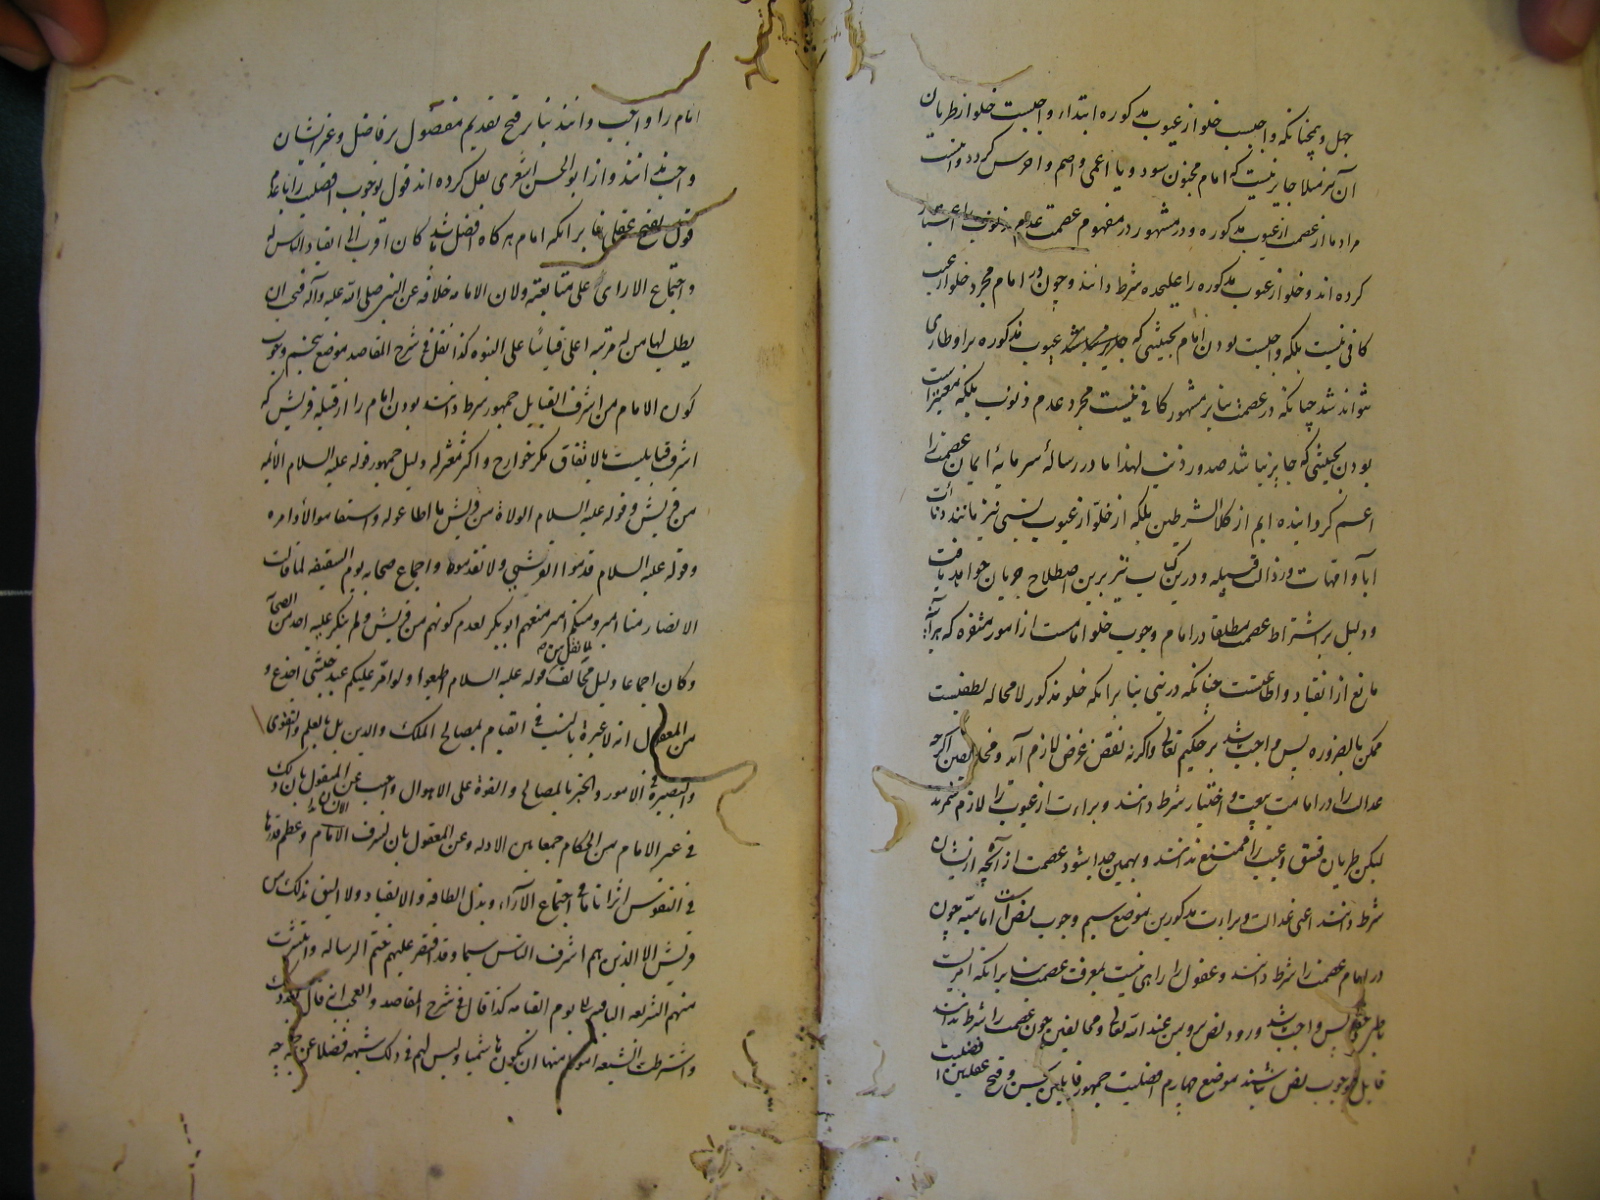 جهل و همچنانکه واجبست خلو از عیوب مذکوره ابتداء واجبست خلو از طریان
آن نیز مثلا جایز نیست که امام مجنون شود و یا اعمی و اصم و اخرس کردد و اینست
مراد ما از عصمت از عیوب مذکوره و در مشهور در مفهوم عصمت عدم ذنوب را اعتبار
کرده اند و خلو از عیوب مذکوره را علیحده شرط دانند و چون در امام مجرد خلو از عیب
کافی نیست بلکه واجبست بودن امام بحیثیتی که عیوب مذکوره بر او طاری
نتواند شد چنانکه در عصمت بنا بر مشهور کافی نیست مجرد عدم ذنوب بلکه معتبر است
بودن بحیثیتی که جایز نباشد صدور ذنب لهذا ما در رسالهٔ سرمایهٔ ایمان عصمت را
اعم کردانیده ایم از کلا الشرطین بلکه از خلو از عیوب نسبی نیز مانند دنائت
ابا و امهات و رذالت قبیله و درین کتاب نیز برین اصطلاح جریان خواهد یافت
و دلیل بر اشتراط عصمت مطلقا در امام وجوب خلو امامت از امور منفره که هر آینه
مانع از انقیاد و اطاعتست چنانکه در نبی بنا بر آنکه خلو مذکور لا محاله لطفیست
ممکن بالضروره پس واجب باشد بر حکیم تعالی و اگر نه نقض غرض لازم آید و مخالفین اگرچه
عدالت را در امامت بیعت و اختیار شرط دانند و براءت از عیوب را لازم شمرند
لیکن طریان فسق و عیب را ممتنع ندانند و بهمین جدا شود عصمت از آنچه ایشان
شرط دانند اعنی عدالت و براءت مذکورین موضع سیم وجوب نص است امامیه چون
در امام عصمت را شرط دانند و عقول را راهی نیست بمعرفت عصمت بنا بر آنکه امریست
باطن پس واجب باشد ورود نص بر وی من عند الله تعالی و مخالفین چون عصمت را شرط ندانند
قایل بوجوب نص نباشند موضع چهارم افضلیت جمهور قایلین بحسن و قبح عقلیین افضلیت
امام را واجب دانند بنا بر قبح تقدیم مفضول بر فاضل و غیر ایشان
واجب ندانند و از ابو الحسن اشعری نقل کرده اند قول بوجوب افضلیت را با عدم
قول بقبح عقلی بنا بر آنکه امام هر کاه افضل باشد کان اقرب الی انقیاد الناس له
و اجتماع الاراء علی متابعته ولان الامامه خلافة عن النبی صلی الله علیه وآله فیجب ان
یطلب لها من له مرتبه اعلی قیاسا علی النبوه کذا نقل فی شرح المقاصد موضع پنجم وجوب
کون الامام من اشرف القبایل جمهور شرط دانند بودن امام را از قبیله قریش که
اشرف قبایلست بالاتفاق مکر خوارج و اکثر معتزله دلیل جمهور قوله علیه السلام الائمه
من قریش و قوله علیه السلام الولاة من قریش ما اطاعوا لله و استقاموا لأوامره
و قوله علیه السلام قدموا القریش ولا تقدموها و اجماع صحابه یوم السقیفه لما قالت
الانصار منا امیر و منکم امیر منعهم ابو بکر لعدم کونهم من قریش ولم ینکر علیه احد من الصحابه
و کان اجماعا و دلیل مخالف ما نقل من قوله علیه السلام اطیعوا ولو امر علیکم عبد حبشی اجدع و
من المعقول انه لا عبرة بالنسب فی القیام بمصالح الملک و الدین بل بالعلم و التقوی
و البصیرة فی الامور و الخبر بالمصالح و القوة علی الاهوال و اجیب عن المنقول بان ذلک
فی غیر الامام من الحکام جمعا بین الادله و عن المعقول بان لشرف الانساب و عظم قدرها
فی النفوس اثرا تاما فی اجتماع الآراء و بذل الطاقه و الانقیاد ولا الیق بذلک من
قریش الا الذین هم اشرف الناس سیما و قد اقتصر علیهم ختم الرساله و انتشرت
منهم الشریعه الباقیه الی یوم القیامه کذا قال فی شرح المقاصد و العجب انه قال بعد ذلک
و اشترطت الشیعه امورا منها ان یکون هاشمیا و لیس لهم فی ذلک شبهه فضلا عن حجه